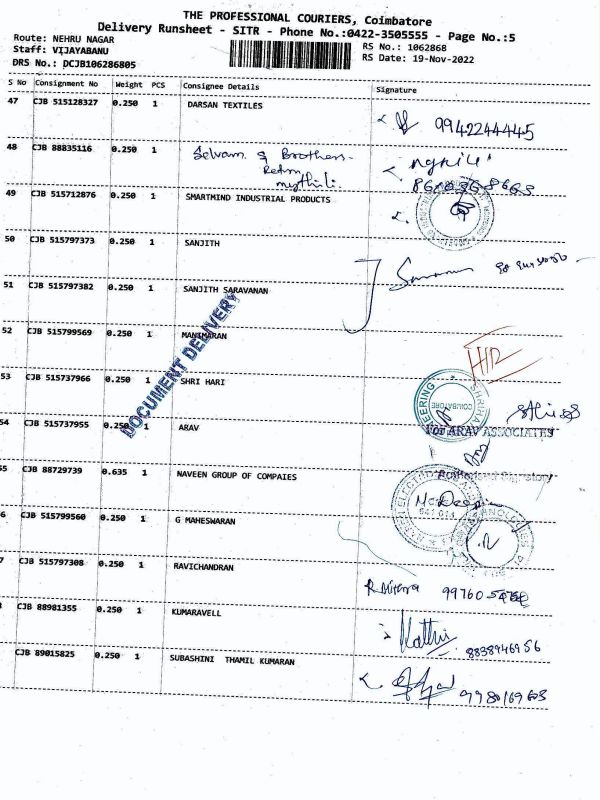 THE PROFESSIONAL COURIERS, Coimbatore
Delivery Runsheet - SITR - Phone No.:0422-3505555 - Page No.:5
Route: NEHRU NAGAR RS No.: 1062868
Staff: VIJAYABANU RS Date: 19-Nov-2022
DRS No.: DCJB106286805
S No Consignment No Weight PCS Consignee Details Signature
47 CJB 515128327 0.250 1 DARSAN TEXTILES
9942244445
48 CJB 88835116 0.250 1 Selvam & Brothers-
49 CJB 515712876 0.250 1 SMARTMIND INDUSTRIAL PRODUCTS
50 CJB 515797373 0.250 1 SANJITH
51 CJB 515797382 0.250 1 SANJITH SARAVANAN
DOCUMENT DELIVERY
52 CJB 515799569 0.250 1 MANIMARAN
53 CJB 515737966 0.250 1 SHRI HARI
COIMBATORE
54 CJB 515737955 0.250 1 ARAV
For ARAV ASSOCIATES
55 CJB 88729739 0.635 1 NAVEEN GROUP OF COMPAIES
6 CJB 515799560 0.250 1 G MAHESWARAN
7 CJB 515797308 0.250 1 RAVICHANDRAN
CJB 88981355 0.250 1 KUMARAVELL
8838946956
CJB 89015825 0.250 1 SUBASHINI THAMIL KUMARAN
9980169603